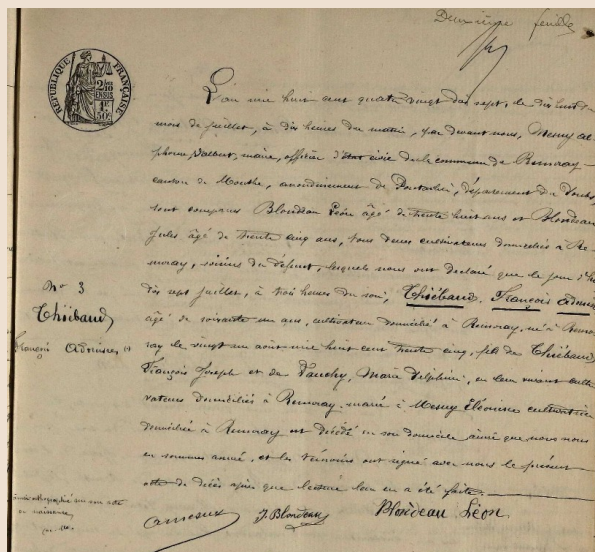 Deuxième feuille
RÉPUBLIQUE FRANÇAISE
L'an mil huit cent quatre vingt dix sept, le dix huit
mois de juillet, à dix heures du matin, par devant nous, Mesny Al-
phonse Valbert, maire, officier d'état civil de la commune de Remoray
canton de Mouthe, arrondissement de Pontarlier, département du Doubs,
sont comparus Blondeau Léon âgé de trente huit ans et Blondeau
Jules âgé de trente cinq ans, tous deux cultivateurs domiciliés à Re-
moray, voisins du défunt, lesquels nous ont déclaré que le jour d'hier
dix sept juillet, à trois heures du soir, Thiébaud, François
âgé de soixante un ans, cultivateur domicilié à Remoray, né à Remo-
ray le vingt un août mil huit cent trente cinq, fils de Thiébaud,
François Joseph et de Vauchy, Marie Delphine, en leur vivant culti-
vateurs domiciliés à Remoray, marié à Mesny Eléonise cultivatrice
domiciliée à Remoray est décédé en son domicile ainsi que nous nous
en sommes assuré, et les témoins ont signé avec nous le présent
acte de décès après que lecture leur en a été faite.
No 3
Thiébaud
François
J. Blondeau
Blondeau Léon